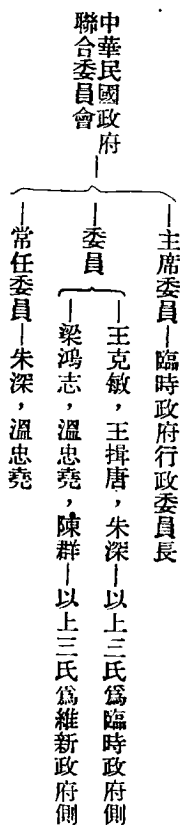 中華民國政府
聯合委員會
主席委員—臨時政府行政委員長
委員
王克敏，王揖唐，朱深—以上三氏爲臨時政府側
梁鴻志，溫忠堯，陳群—以上三氏爲維新政府側
常任委員—朱深，溫忠堯